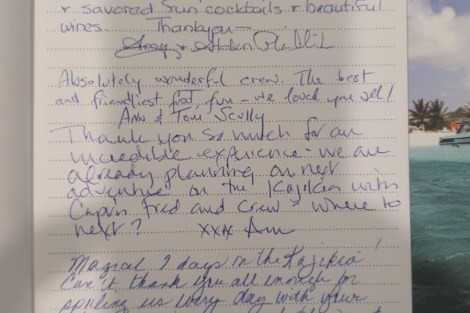 & savoured Sun cocktails & beautiful
wines. Thankyou —
Absolutely wonderful crew. The best
and friendliest food, fun – we loved you all!
Ann & Tom Scully
Thank you so much for an
incredible experience – we are
already planning our next
adventure on the Kajikia with
Capt'n Fred and Crew – Where to
next? xxx Ann
Magical 9 days in the Kajikia!
Can't thank you all enough for
spoiling us every day with your